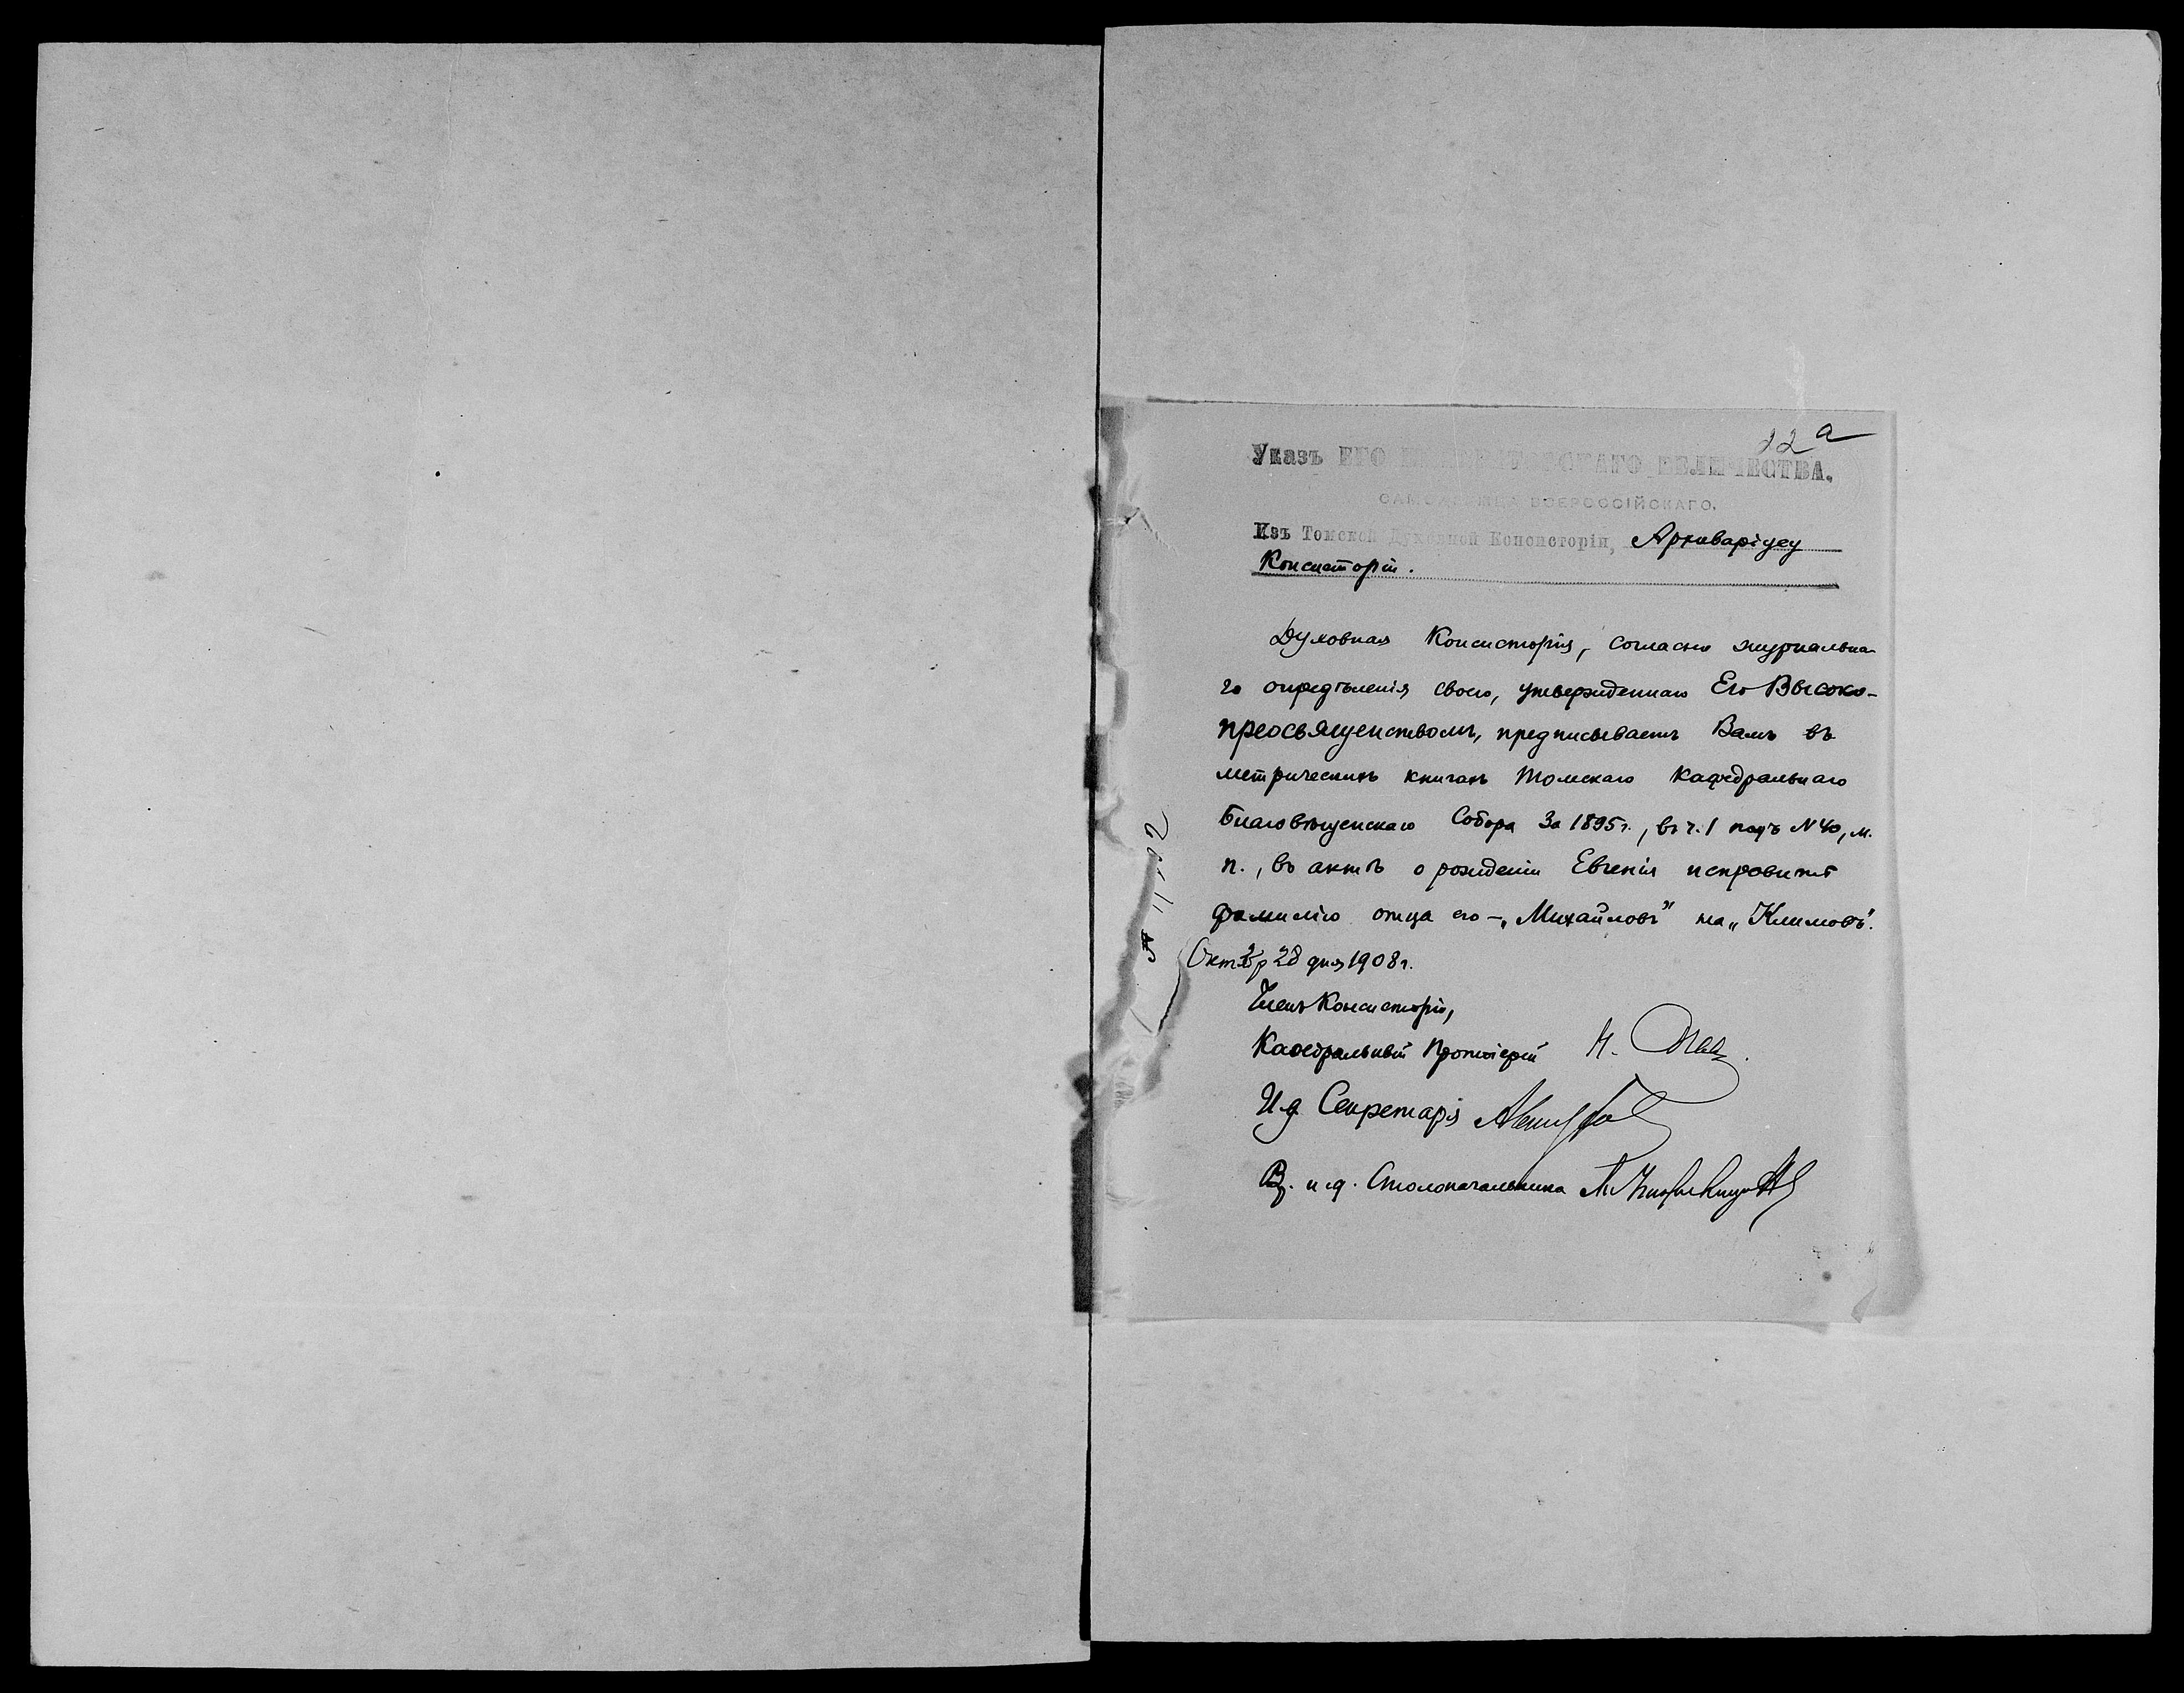 22а
Указъ ЕГО ИМПЕРАТОРСКАГО ВЕЛИЧЕСТВА.
САМОДЕРЖЦА ВСЕРОССІЙСКАГО.
Изъ Томской Духовной Консисторіи, Архиваріусу
Консисторіи.
Духовная Консисторія, согласно журнальна-
го опредѣленія своего, утвержденнаго Его Высоко-
преосвященствомъ, предписываетъ Вамъ въ
метрическихъ книгахъ Томскаго Каѳедральнаго
Благовѣщенскаго Собора за 1895 г., въ ч. I подъ № 40, м.
п., въ актѣ о рожденіи Евгенія исправить
фамилію отца его – „Михайловъ" на „Климовъ".
Октября 28 дня 1908 г.
Членъ Консисторіи,
Каѳедральный Протоіерей Н.
И. д. Секретаря
В. и. д. Столоначальника